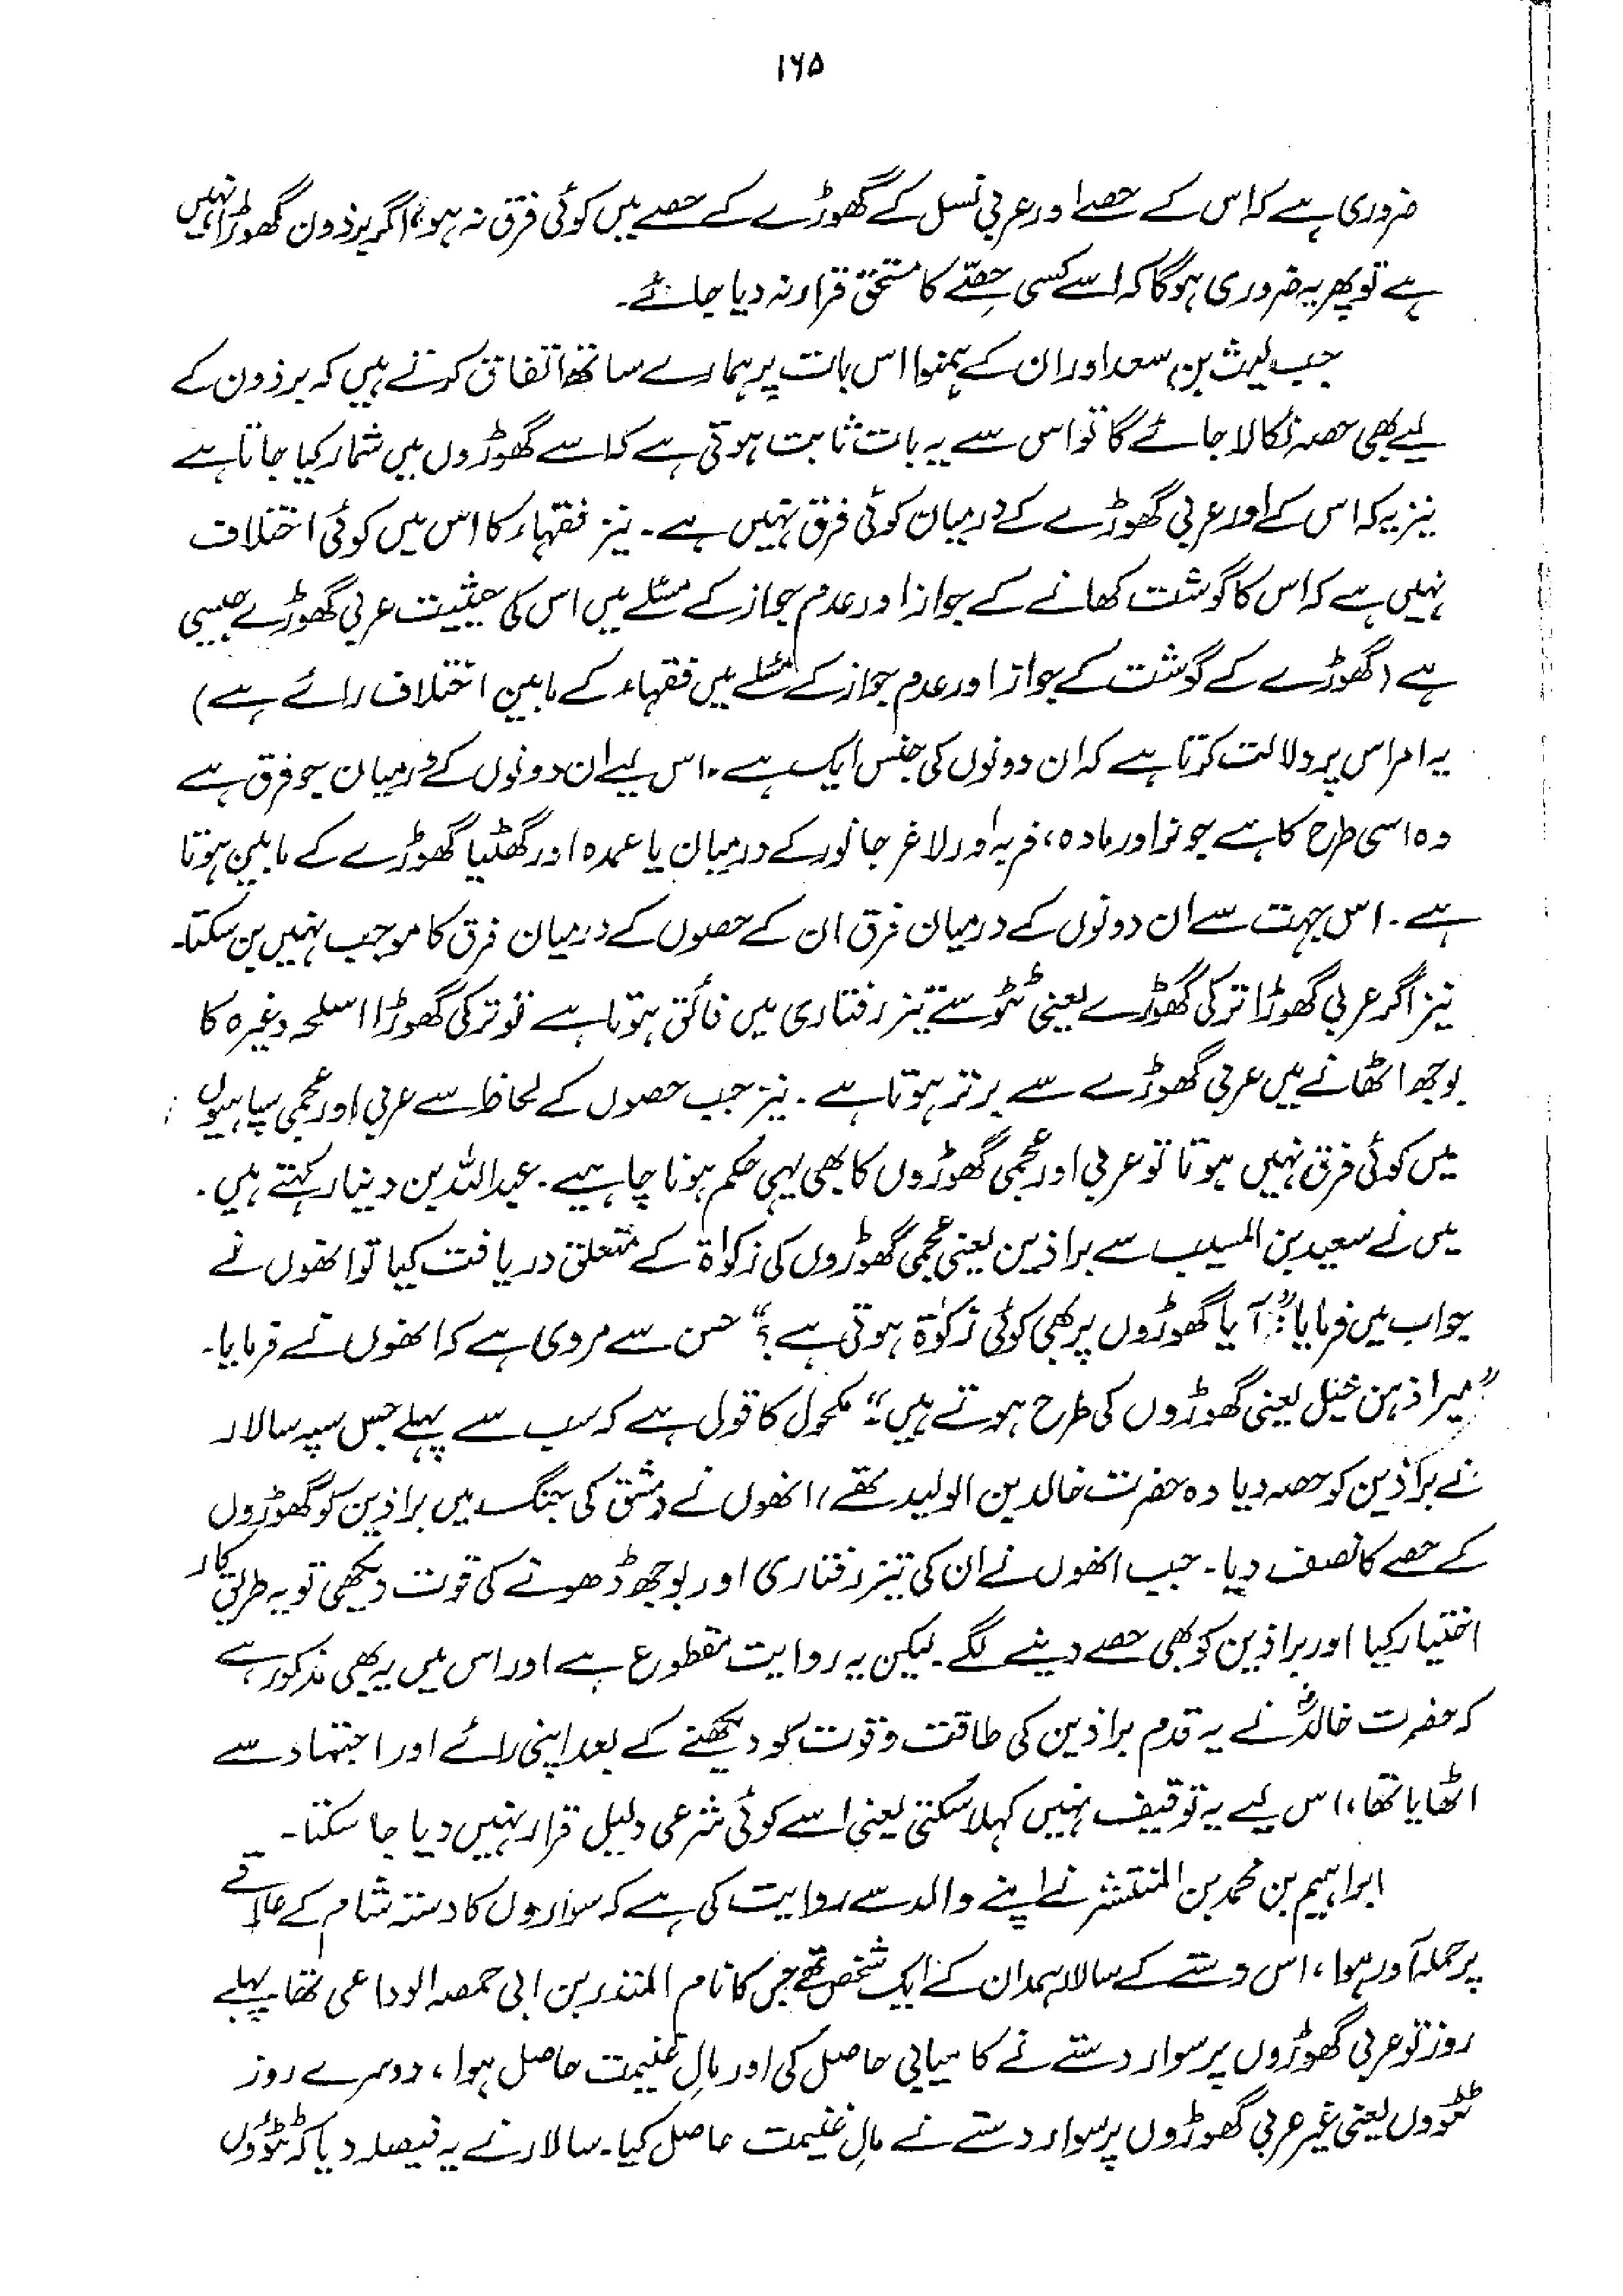 ۱۶۵
ضروری ہے کہ اس کے حصے اور عربی نسل کے گھوڑے کے حصے میں کوئی فرق نہ ہو، اگر برذون گھوڑا نہیں
ہے تو پھر یہ ضروری ہوگا کہ اسے کسی حصّے کا مستحق قرار نہ دیا جائے۔
جب لیث بن سعد اور ان کے ہمنوا اس بات پر ہمارے ساتھ اتفاق کرتے ہیں کہ برذون کے
لیے بھی حصہ نکالا جائے گا تو اس سے یہ بات ثابت ہوتی ہے کہ اسے گھوڑوں میں شمار کیا جاتا ہے
نیز یہ کہ اس کے اور عربی گھوڑے کے درمیان کوئی فرق نہیں ہے۔ نیز فقہاء کا اس میں کوئی اختلاف
نہیں ہے کہ اس کا گوشت کھانے کے جواز اور عدم جواز کے مسئلے میں اس کی حیثیت عربی گھوڑے جیسی
ہے (گھوڑے کے گوشت کے جواز اور عدم جواز کے مسئلے میں فقہاء کے مابین اختلاف رائے ہے)
یہ امر اس پر دلالت کرتا ہے کہ ان دونوں کی جنس ایک ہے۔ اس لیے ان دونوں کے درمیان جو فرق ہے
وہ اسی طرح کا ہے جو نر اور مادہ، فربہ اور لاغر جانور کے درمیان یا عمدہ اور گھٹیا گھوڑے کے مابین ہوتا
ہے۔ اس جہت سے ان دونوں کے درمیان فرق ان کے حصوں کے درمیان فرق کا موجب نہیں بن سکتا۔
نیز اگر عربی گھوڑا ترکی گھوڑے یعنی ٹٹو سے تیز رفتاری میں فائق ہوتا ہے تو ترکی گھوڑا اسلحہ وغیرہ کا
بوجھ اٹھانے میں عربی گھوڑے سے برتر ہوتا ہے۔ نیز جب حصوں کے لحاظ سے عربی اور عجمی سپاہیوں
میں کوئی فرق نہیں ہوتا تو عربی اور عجمی گھوڑوں کا بھی یہی حکم ہونا چاہیے۔ عبداللہ بن دینار کہتے ہیں۔
میں نے سعید بن المسیب سے براذین یعنی عجمی گھوڑوں کی زکواۃ کے متعلق دریافت کیا تو انھوں نے
جواب میں فرمایا: "آیا گھوڑوں پر بھی کوئی زکوٰۃ ہوتی ہے؟" حسن سے مروی ہے کہ انھوں نے فرمایا۔
"میراذہن خیل یعنی گھوڑوں کی طرح ہوتے ہیں۔" مکحول کا قول ہے کہ سب سے پہلے جس سپہ سالار
نے براذین کو حصہ دیا وہ حضرت خالد بن الولید تھے، انھوں نے دمشق کی جنگ میں براذین کو گھوڑوں
کے حصے کا نصف دیا۔ جب انھوں نے ان کی تیز رفتاری اور بوجھ ڈھونے کی قوت دیکھی تو یہ طریق کار
اختیار کیا اور براذین کو بھی حصے دینے لگے۔ لیکن یہ روایت مقطوع ہے اور اس میں یہ بھی مذکور ہے
کہ حضرت خالدؓ نے یہ قدم براذین کی طاقت و قوت کو دیکھنے کے بعد اپنی رائے اور اجتہاد سے
اٹھایا تھا، اس لیے یہ توقیف نہیں کہلا سکتی یعنی اسے کوئی شرعی دلیل قرار نہیں دیا جا سکتا۔
ابراہیم بن محمد بن المنتشر نے اپنے والد سے روایت کی ہے کہ سواروں کا دستہ شام کے علاقے
پر حملہ آور ہوا، اس دستے کے سالار ہمدان کے ایک شخص تھے جن کا نام المنذر بن ابی حمصہ الوداعی تھا پہلے
روز تو عربی گھوڑوں پر سوار دستے نے کامیابی حاصل کی اور مالِ غنیمت حاصل ہوا، دوسرے روز
ٹٹوؤں یعنی غیر عربی گھوڑوں پر سوار دستے نے مالِ غنیمت حاصل کیا۔ سالار نے یہ فیصلہ دیا کہ ٹٹوؤں